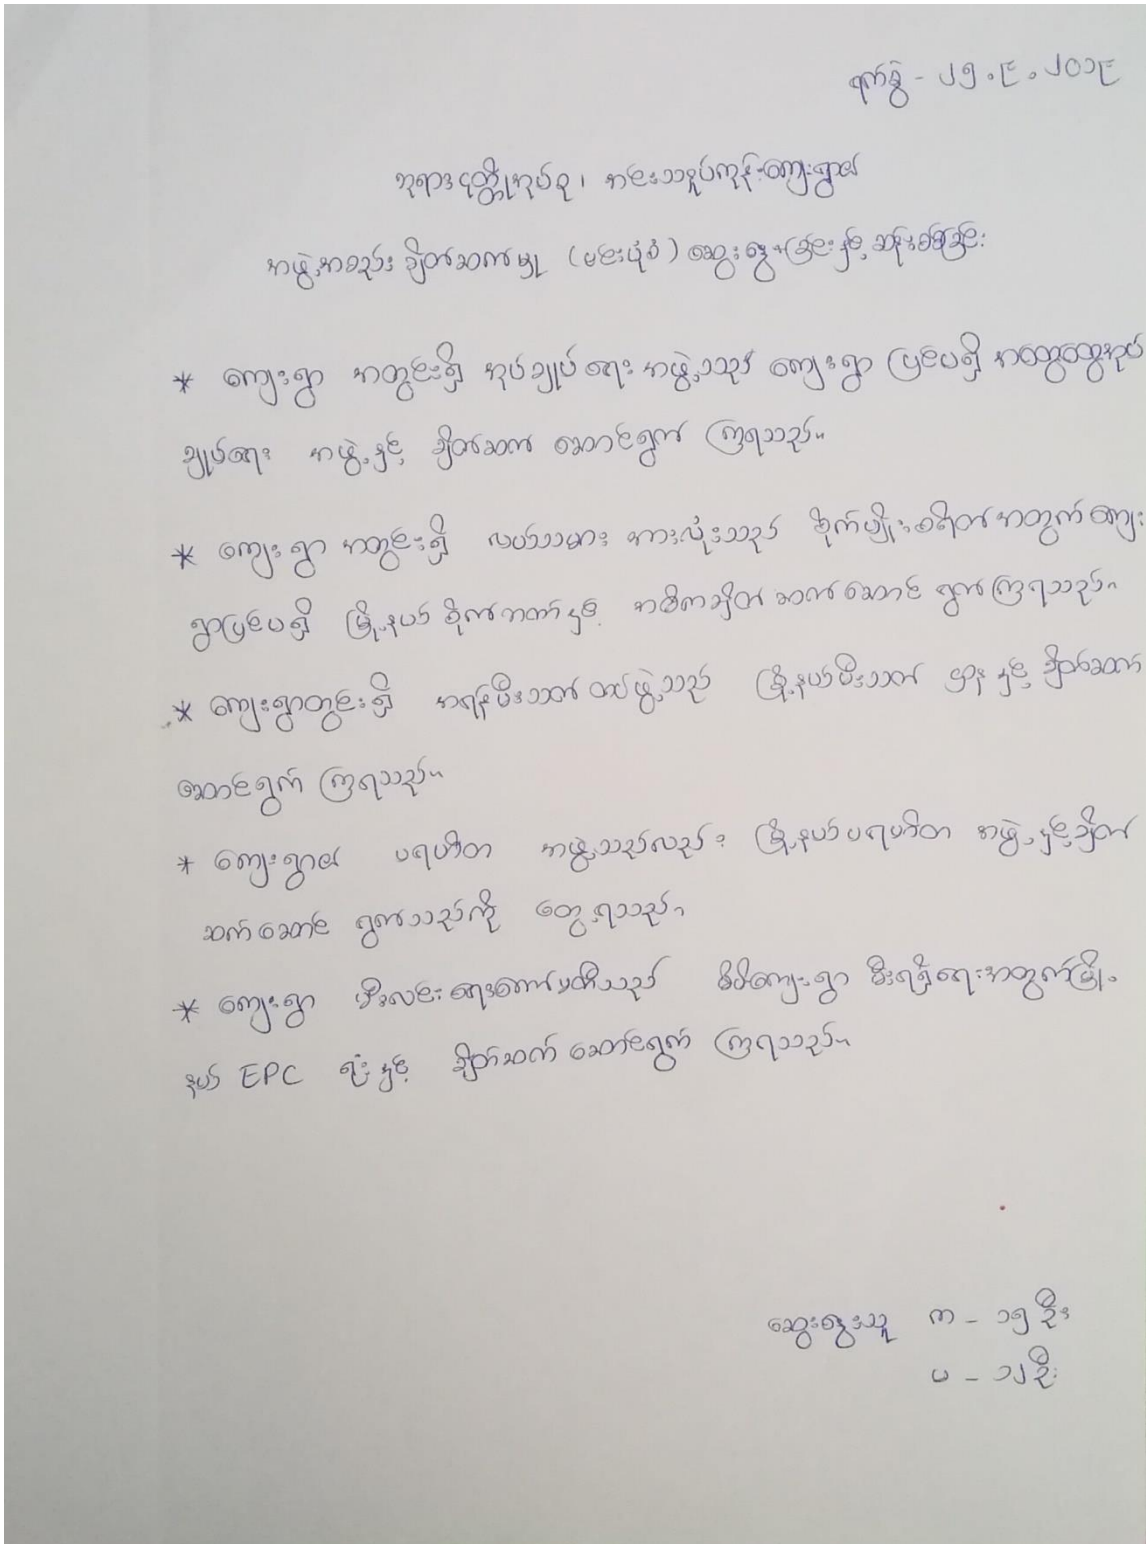 ရက်စွဲ - ၂၅.၉.၂၀၁၉
ဘုရားငုတ္တိုအုပ်စု၊ အင်းသဖူပ်ကုန်းကျေးရွာ၏
အဖွဲ့အစည်း ချိတ်ဆက်မှု (ဗင်းပုံစံ) ဆွေးနွေးခြင်းနှင့် ဆန်းစစ်ခြင်း
* ကျေးရွာ အတွင်းရှိ အုပ်ချုပ်ရေး အဖွဲ့သည် ကျေးရွာ ပြင်ပရှိ အထွေထွေအုပ်
ချုပ်ရေး အဖွဲ့နှင့် ချိတ်ဆက် ဆောင်ရွက် ကြရသည်။
* ကျေးရွာ အတွင်းရှိ လယ်သမား အားလုံးသည် စိုက်ပျိုးစရိတ်အတွက် ကျေး
ရွာပြင်ပရှိ မြို့နယ် စိုက်ဘဏ်နှင့် အဓိကချိတ် ဆက်ဆောင် ရွက်ကြရသည်။
* ကျေးရွာတွင်းရှိ အရန်မီးသတ် တပ်ဖွဲ့သည် မြို့နယ်မီးသတ် ဌာန နှင့် ချိတ်ဆက်
ဆောင်ရွက် ကြရသည်။
* ကျေးရွာ၏ ပရဟိတ အဖွဲ့သည်လည်း မြို့နယ်ပရဟိတ အဖွဲ့နှင့်ချိတ်
ဆက်ဆောင် ရွက်သည်ကို တွေ့ရသည်။
* ကျေးရွာ မီးလင်းရေးကော်မတီသည် မိမိကျေးရွာ မီးရရှိရေးအတွက်မြို့
နယ် EPC ရုံးနှင့် ချိတ်ဆက် ဆောင်ရွက် ကြရသည်။
ဆွေးနွေးသူ က - ၁၅ ဦး
မ - ၁၂ ဦး